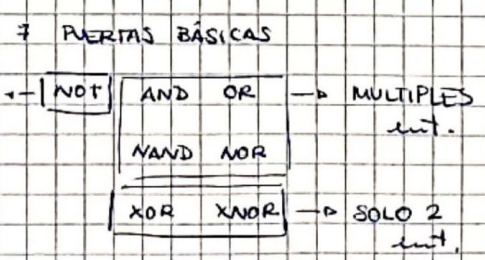 7 PUERTAS BÁSICAS
NOT AND OR → MULTIPLES
ent.
NAND NOR
XOR XNOR → SOLO 2
ent.